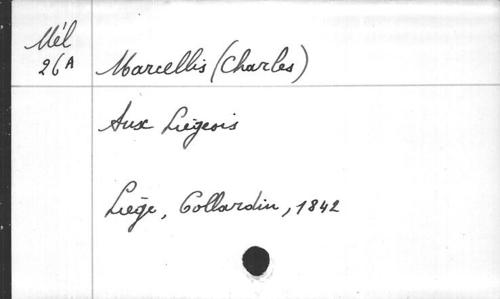 Mél
26A
Marcellis (Charles)
Aux Liégeois
Liége, Collardin, 1842